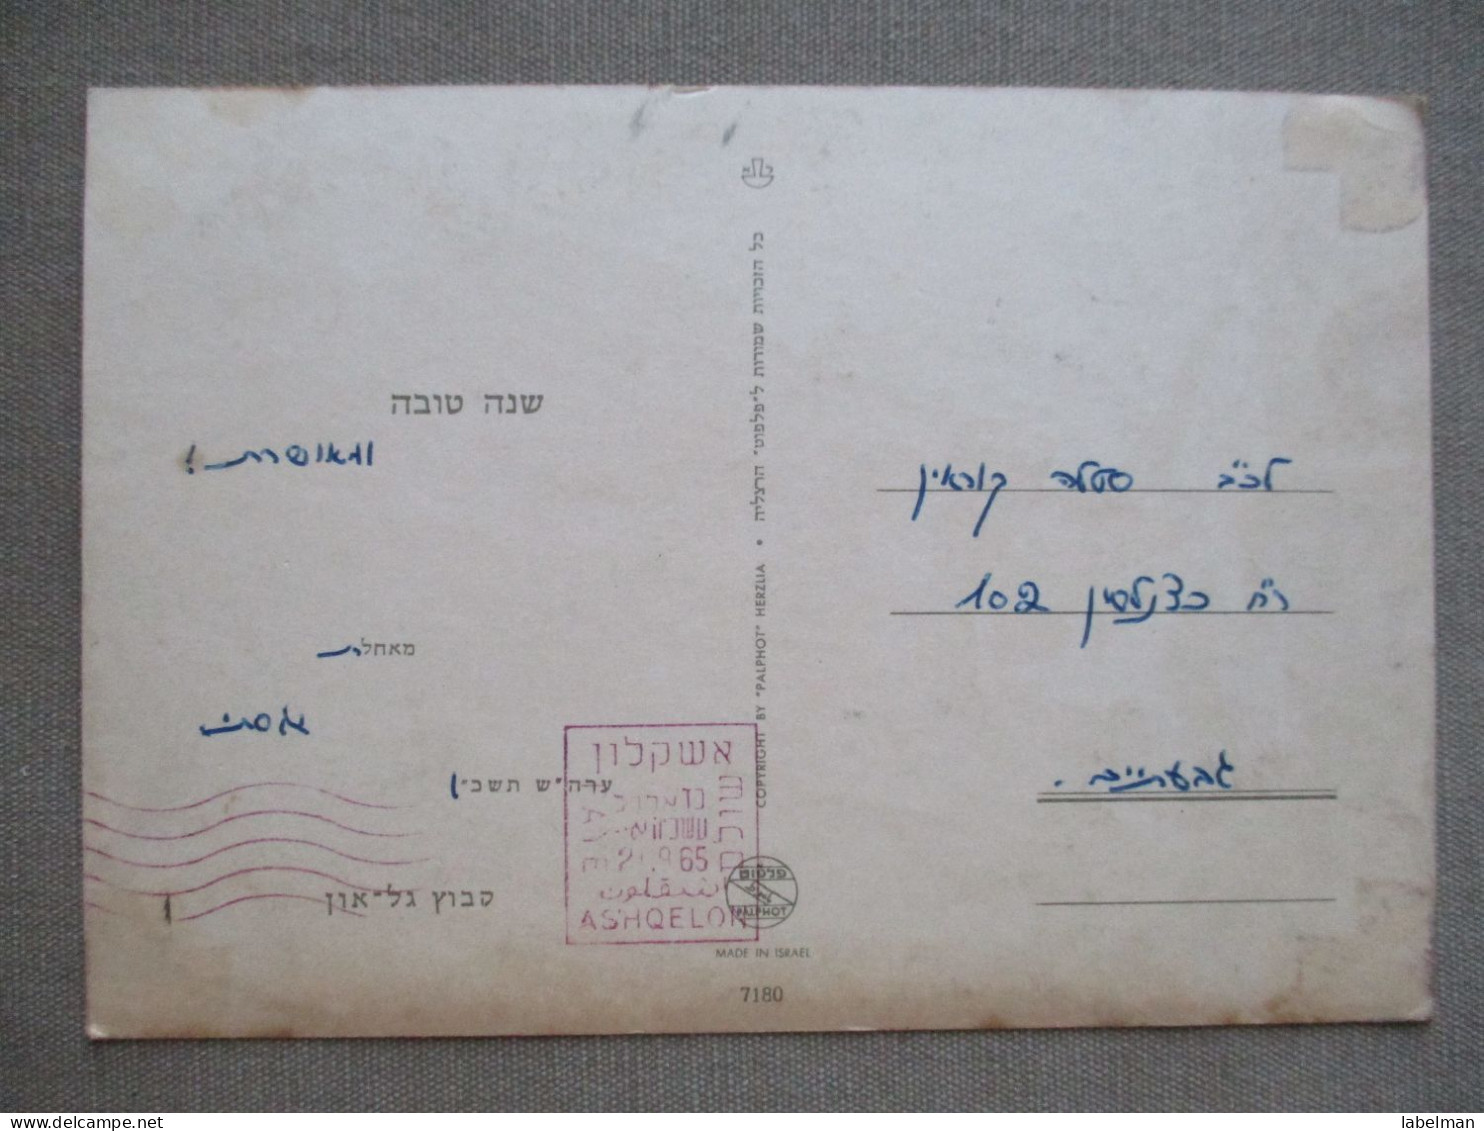 שנה טובה
ומאושרת!
מאחלת
ערה"ש תשכ"ו
קבוץ גל־און
כל הזכויות שמורות ל"פלפוט" הרצליה • COPYRIGHT BY "PALPHOT" HERZLIA
אשקלון
21.9.65
ASHQELON
פלפוט
PALPHOT
MADE IN ISRAEL
7180
לכ"ב סטלה קוראין
רח' כצנלסון 102
גבעתיים.
labelman
delcampe.net